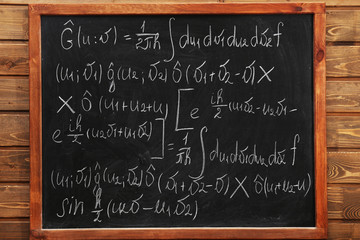 Ĝ(u; v̄) = 1/2πħ ∫ du₁ dv̄₁ du₂ dv̄₂ f
(u₁; v̄₁) ĝ(u₂; v̄₂) ô(v̄₁ + v̄₂ - v̄) ×
× ô(u₁ + u₂ + u) [ e iħ/2 (u₁v̄₂ - u₂v̄₁ -
e iħ/2 (u₂v̄₁ + u₁v̄₂) ] = 1/πħ ∫ du₁ dv̄₁ du₂ dv̄₂ f
(u₁; v̄₁) ĝ(u₂; v̄₂) ô (v̄₁ + v̄₂ - v̄) × ô(u₁ + u₂ - u)
sin ħ/2 (u₂v̄ - u₁v̄₂)